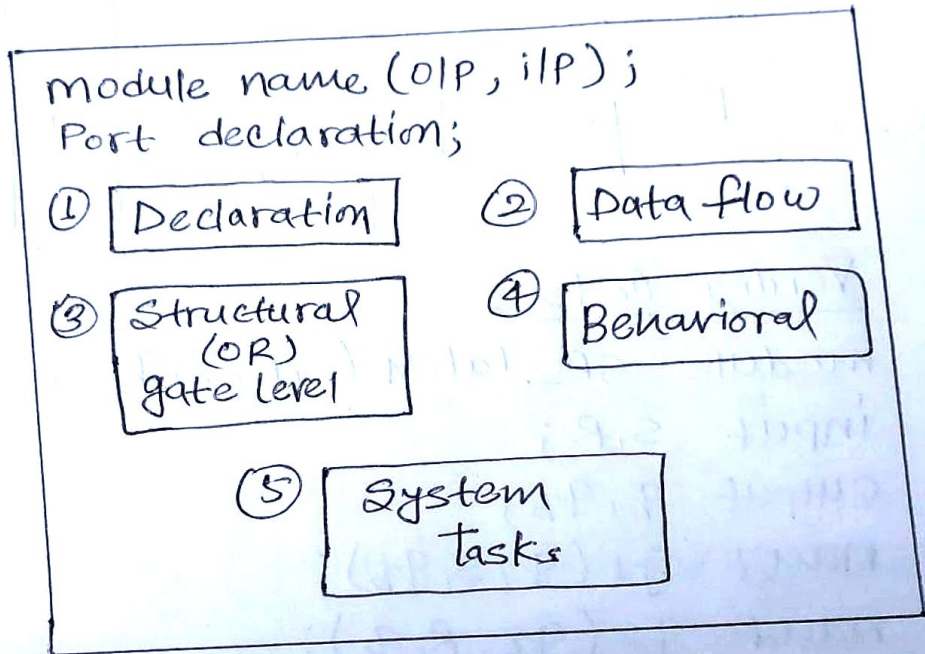 module name (O/P, i/P);
Port declaration;
① Declaration
② Data flow
③ Structural
(OR)
gate level
④ Behavioral
⑤ System
Tasks
input S,R;